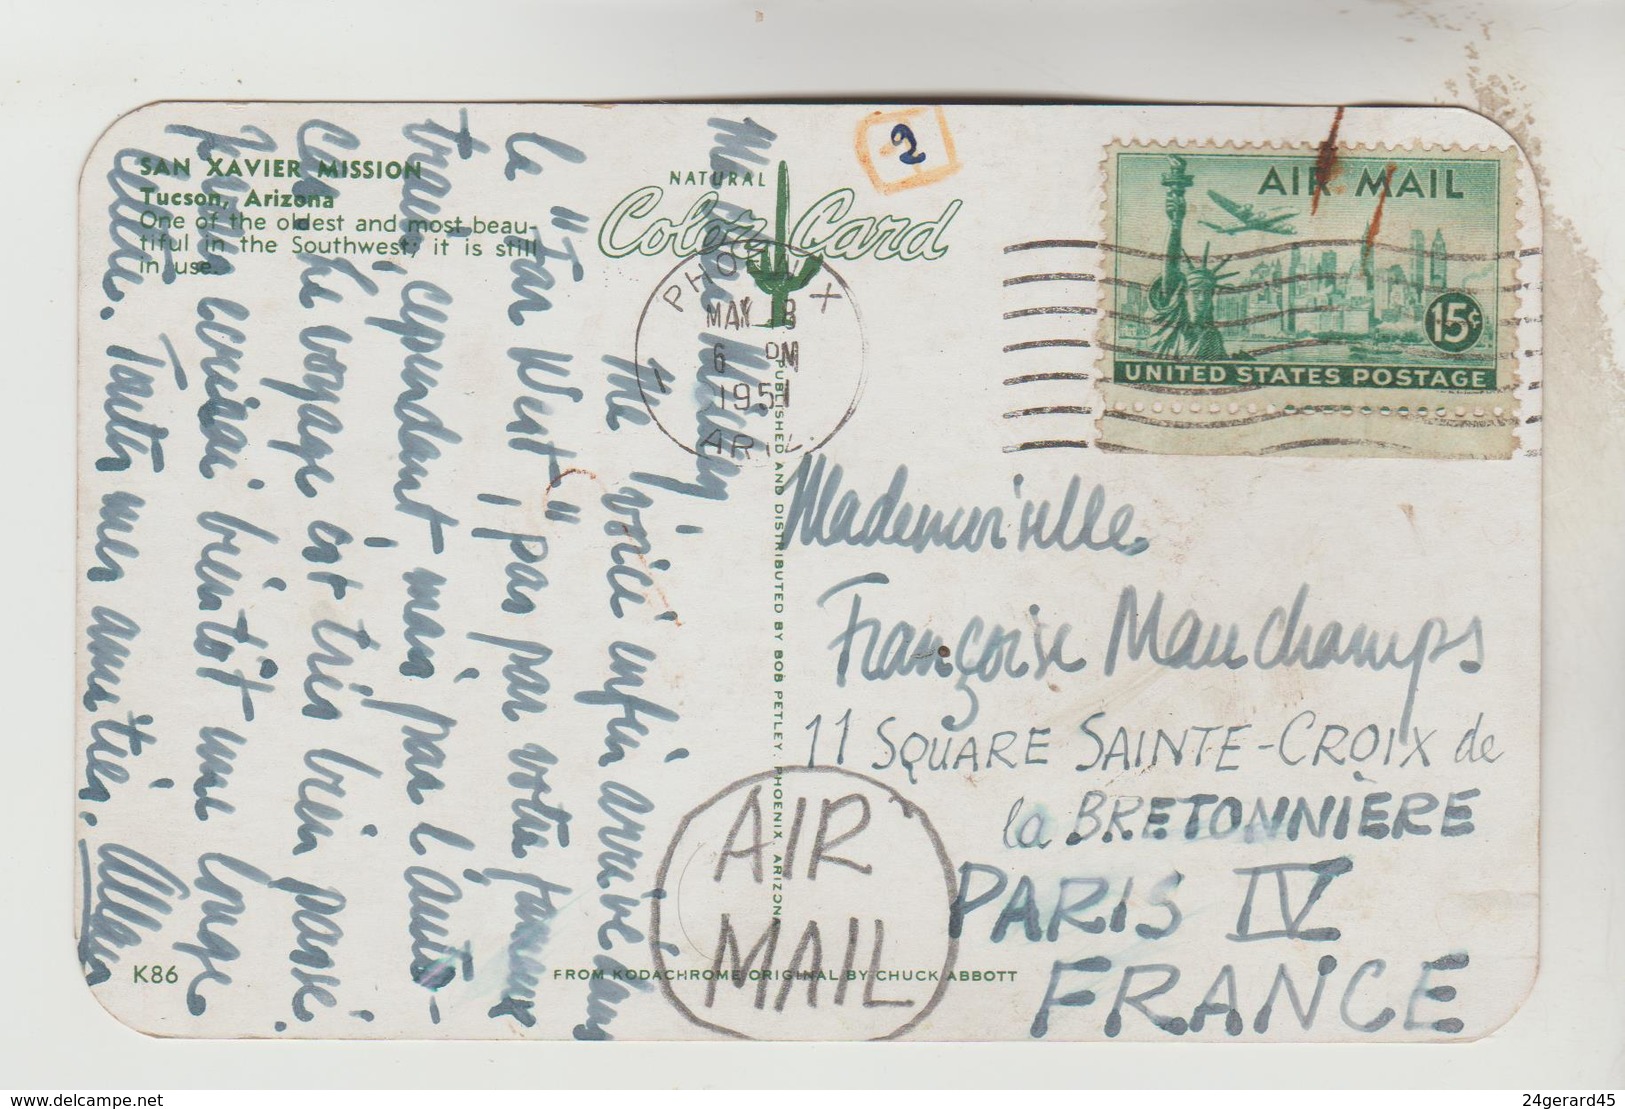 SAN XAVIER MISSION
Tucson, Arizona
One of the oldest and most beau-
tiful in the Southwest; it is still
in use.
NATURAL
Color Card
2
PHOENIX
MAY 8
6 PM
1951
ARIZ.
AIR MAIL
15¢
UNITED STATES POSTAGE
Ma chère
Me voici enfin arrivé dans
le "Far West", pas par votre fameux
train cependant mais par l'auto-
car. Le voyage est très bien passé.
Je vous écrirai bientôt une longue
lettre. Toutes mes amitiés. Alain
Mademoiselle
Françoise Mauchamps
11 SQUARE SAINTE-CROIX de
la BRETONNIÈRE
PARIS IV
FRANCE
AIR MAIL
PUBLISHED AND DISTRIBUTED BY BOB PETLEY, PHOENIX, ARIZONA
K86
FROM KODACHROME ORIGINAL BY CHUCK ABBOTT
delcampe.net
24gerard45